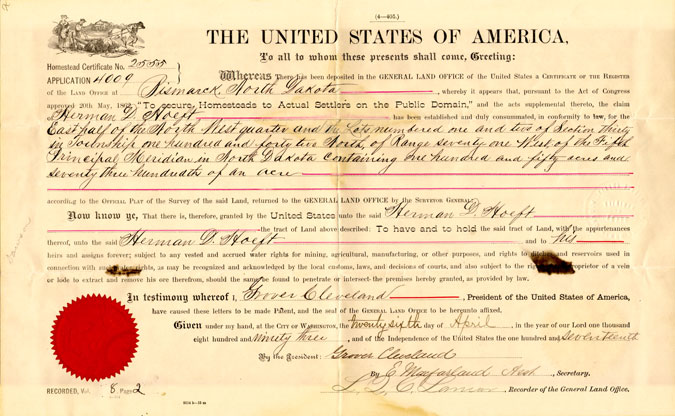 (4—405.)
THE UNITED STATES OF AMERICA,
To all to whom these presents shall come, Greeting:
Homestead Certificate No. 2555
APPLICATION 4009
Whereas There has been deposited in the GENERAL LAND OFFICE of the United States a CERTIFICATE OF THE REGISTER
OF THE LAND OFFICE AT Bismarck, North Dakota, whereby it appears that, pursuant to the Act of Congress
approved 20th May, 1862, "To secure Homesteads to Actual Settlers on the Public Domain," and the acts supplemental thereto, the claim
of Herman D. Hoeft has been established and duly consummated, in conformity to law, for the
East half of the North West quarter and the Lots numbered one and two of Section thirty
in Township one hundred and forty two North, of Range seventy one West of the Fifth
Principal Meridian in North Dakota containing one hundred and fifty acres and
seventy three hundredths of an acre
according to the OFFICIAL PLAT of the Survey of the said Land, returned to the GENERAL LAND OFFICE by the SURVEYOR GENERAL:
Now know ye, That there is, therefore, granted by the United States unto the said Herman D. Hoeft
the tract of Land above described: To have and to hold the said tract of Land, with the appurtenances
thereof, unto the said Herman D. Hoeft and to his
heirs and assigns forever; subject to any vested and accrued water rights for mining, agricultural, manufacturing, or other purposes, and rights to ditches and reservoirs used in
connection with such water rights, as may be recognized and acknowledged by the local customs, laws, and decisions of courts, and also subject to the right of the proprietor of a vein
or lode to extract and remove his ore therefrom, should the same be found to penetrate or intersect the premises hereby granted, as provided by law.
In testimony whereof I, Grover Cleveland, President of the United States of America,
have caused these letters to be made Patent, and the seal of the GENERAL LAND OFFICE to be hereunto affixed.
Given under my hand, at the CITY OF WASHINGTON, the twenty sixth day of April, in the year of Our Lord one thousand
eight hundred and ninety three, and of the Independence of the United States the one hundred and seventeenth
By the President: Grover Cleveland
By E. Macfarland Asst., Secretary.
L. Q. C. Lamar, Recorder of the General Land Office.
RECORDED, Vol. 8, Page 2